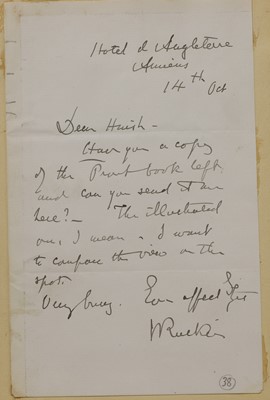 Hotel d'Angleterre
Amiens
14th Oct
Dear Huish -
Have you a copy
of the Prout book left
and can you send it me
here? - The illustrated
one, I mean. I want
to compare the view on the
spot.
Very busy. Ever affect
JRuskin
38